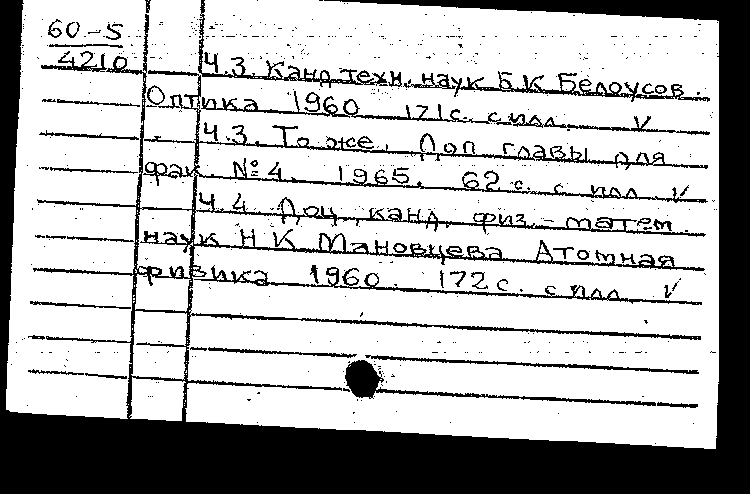 60-5
4210
Ч.3. Канд техн. наук Б.К Белоусов.
Оптика 1960 171с. с илл. V
Ч.3. То же. Доп главы для
фак. №4. 1965. 62с. с илл V
Ч.4 Доц, канд. физ.-матем.
наук Н К Мановцева Атомная
физика 1960. 172с. с илл. V